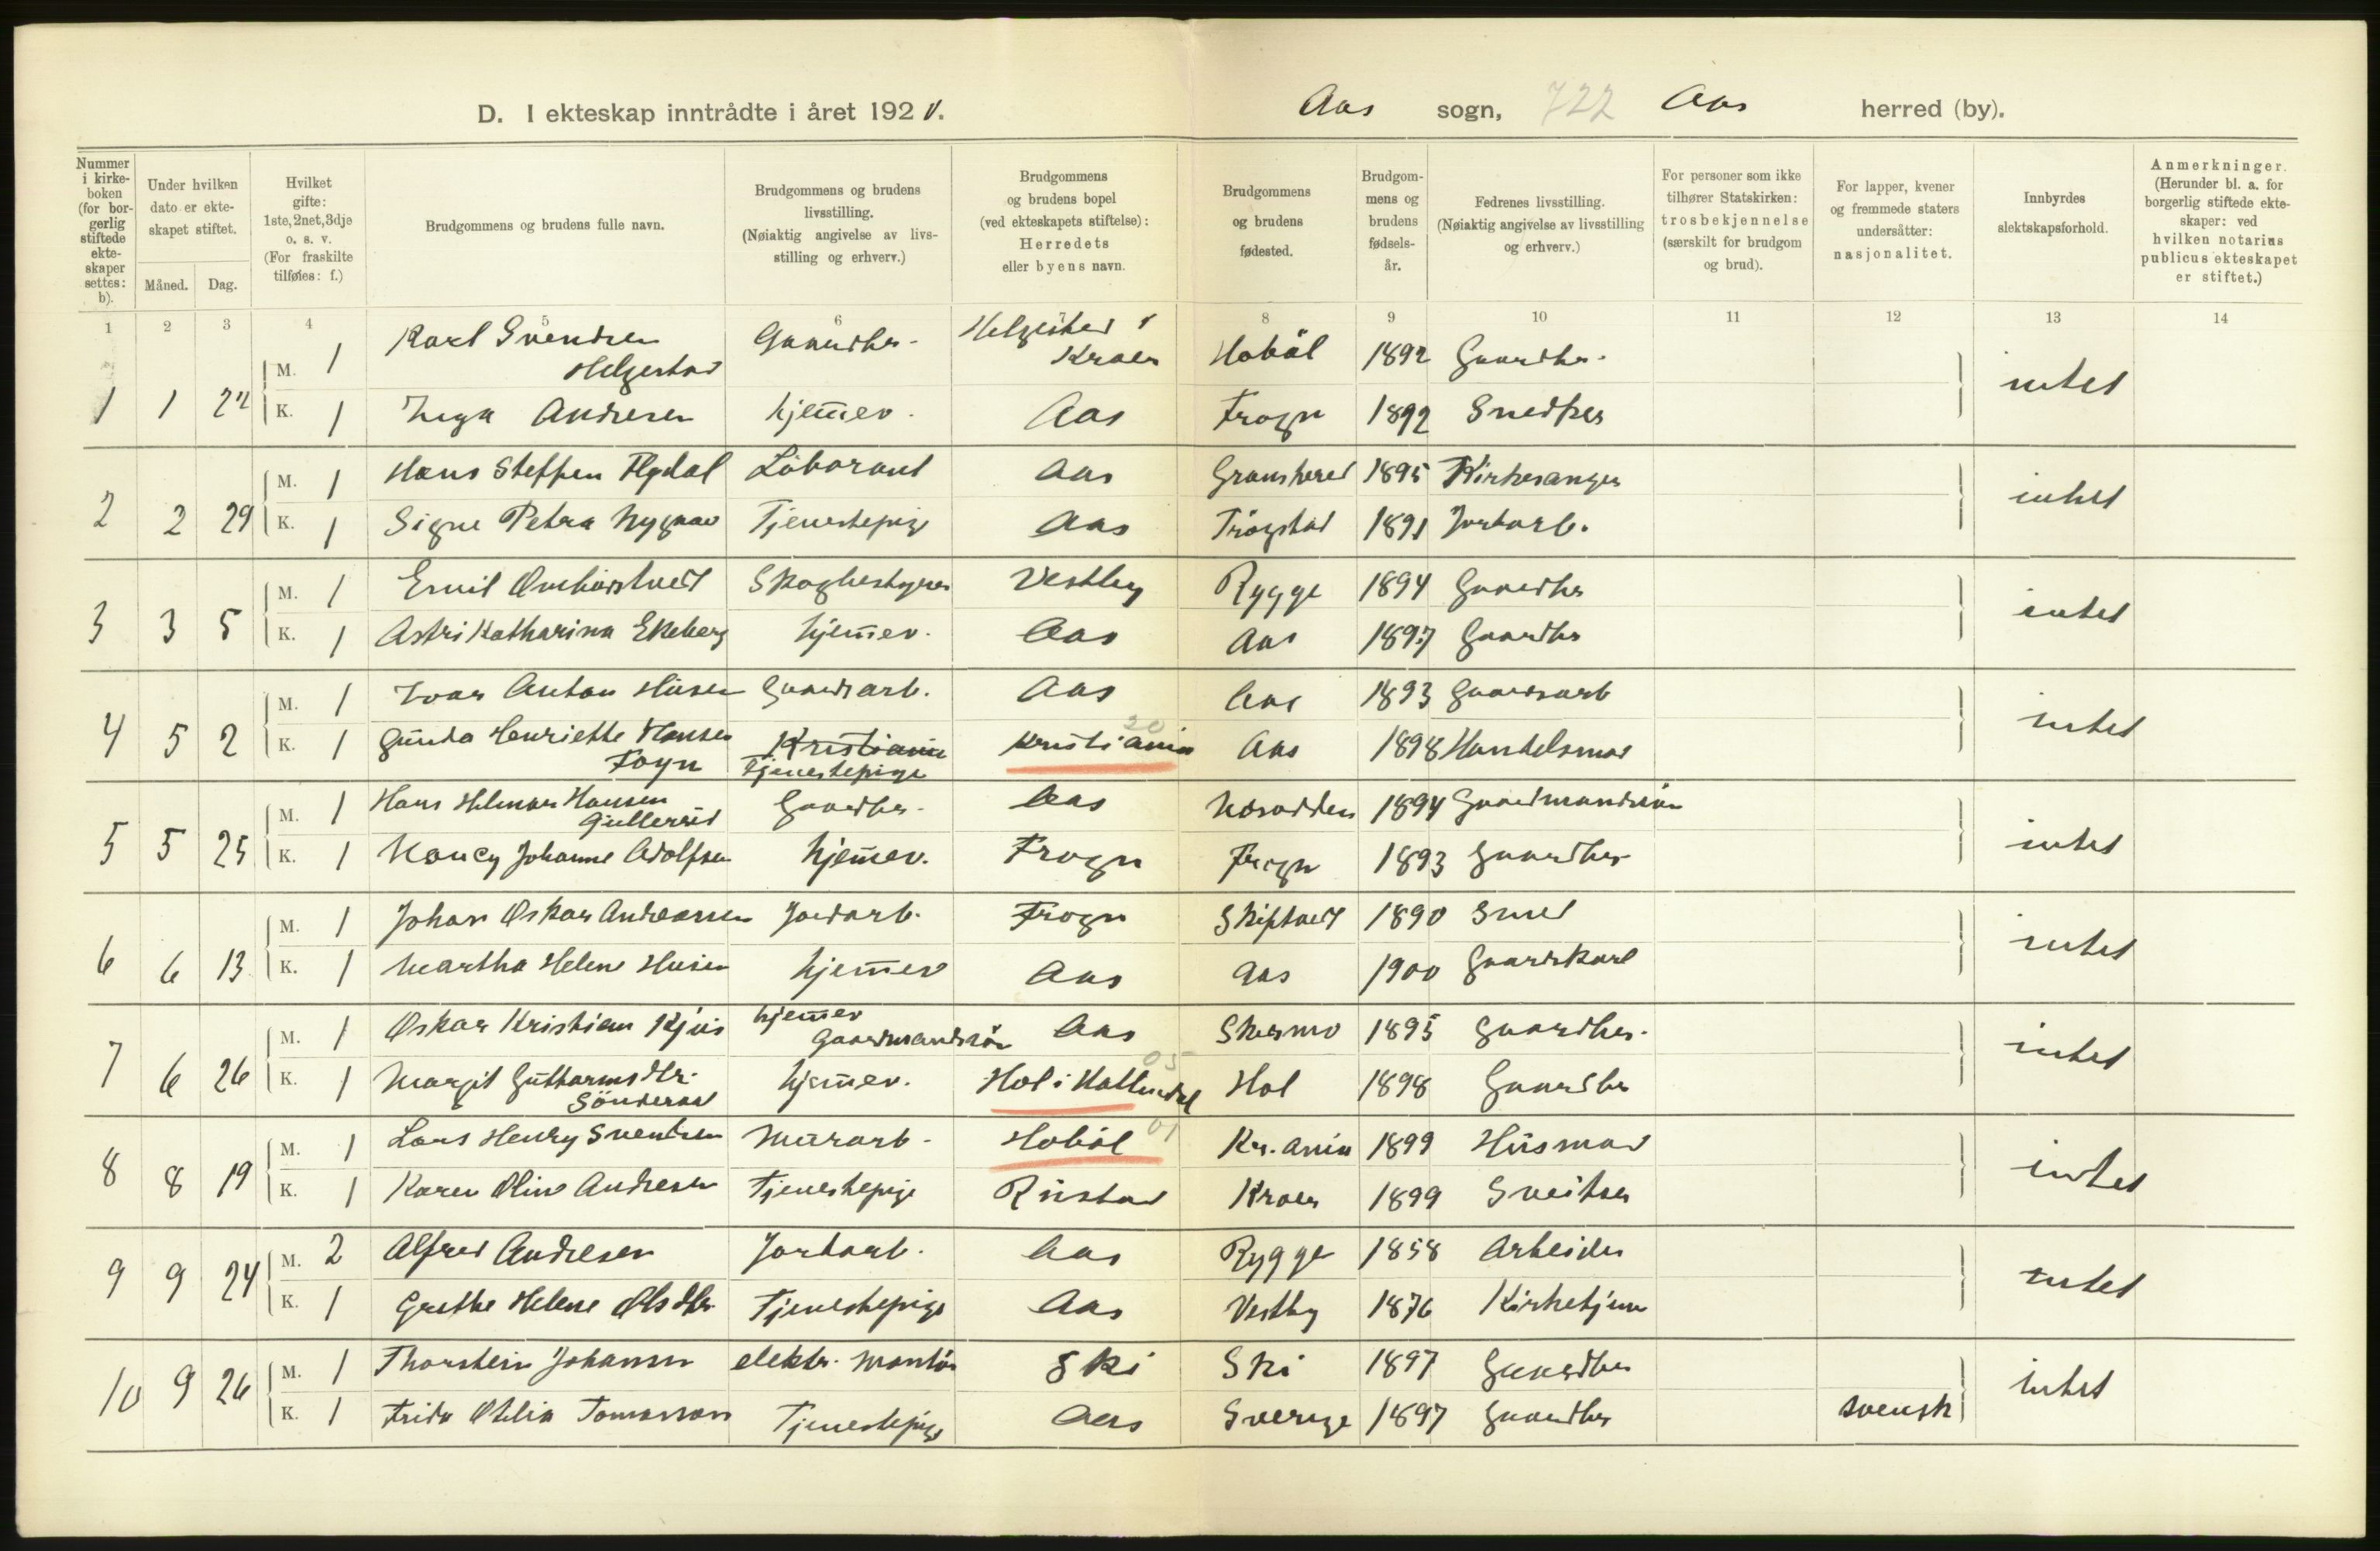 D. I ekteskap inntrådte i året 1920.
Aas sogn, 722 Aas herred (by).
Nummer i kirkeboken (for borgerlig stiftede ekteskaper settes: b).
Under hvilken dato er ekteskapet stiftet.
Måned. Dag.
Hvilket gifte: 1ste, 2net, 3dje o. s. v. (For fraskilte tilføies: f.)
Brudgommens og brudens fulle navn.
Brudgommens og brudens livsstilling. (Nøiaktig angivelse av livsstilling og erhverv.)
Brudgommens og brudens bopel (ved ekteskapets stiftelse): Herredets eller byens navn.
Brudgommens og brudens fødested.
Brudgommens og brudens fødselsår.
Fedrenes livsstilling. (Nøiaktig angivelse av livsstilling og erhverv.)
For personer som ikke tilhører Statskirken: trosbekjennelse (særskilt for brudgom og brud).
For lapper, kvener og fremmede staters undersåtter: nasjonalitet.
Innbyrdes slektskapsforhold.
Anmerkninger. (Herunder bl. a. for borgerlig stiftede ekteskaper: ved hvilken notarius publicus ekteskapet er stiftet.)
1 2 3 4 5 6 7 8 9 10 11 12 13 14
1 1 22 M. 1 Karl Svendsen Helgestad Gaardbr. Helgestad i Kraer Hobøl 1892 Gaardbr. intet
K. 1 Inga Andresen hjemmev. Aas Frogn 1892 Snedker
2 2 29 M. 1 Hans Steffen Flgdal Laborant Aas Gransherad 1895 Kirkesanger intet
K. 1 Signe Petra Nygaar Tjenestepige Aas Trøgstad 1891 Jordarb.
3 3 5 M. 1 Emil Skogbestyrer Vestby Rygge 1894 Gaardbr intet
K. 1 Astri Katharina Ekeberg hjemmev. Aas Aas 1897 Gaardbr
4 5 2 M. 1 Ivar Anton Husen Gaardsarb. Aas Aas 1893 Gaardsarb intet
K. 1 Gunda Henriette Hansen Foyn Kristiania Tjenestepige Kristiania 20 Aas 1898 Handelsmad
5 5 25 M. 1 Hans Helmer Hansen Gullerud Gaardbr. Aas Nesodden 1894 Gaardmandssøn intet
K. 1 Nancy Johanne Adolfsen hjemmev. Frogn Frogn 1893 Gaardbr
6 6 13 M. 1 Johan Oskar Andreassen Jordarb. Frogn Skiptvedt 1890 Smed intet
K. 1 Martha Helene Husen hjemmev Aas Aas 1900 Gaardskarl
7 6 26 M. 1 Oskar Kristian Kjus hjemmev Gaardmandssøn Aas Skermo 1895 Gaardbr. intet
K. 1 Margit Guttormsdtr. Sønderaal hjemmev. Hol i Hallindal 05 Hol 1898 Gaardbr
8 8 19 M. 1 Lars Henry Svendsen Murarb. Hobøl 01 Kr.ania 1899 Husmad intet
K. 1 Karen Oline Andresen Tjenestepige Rustad Kraer 1899 Sveitser
9 9 24 M. 2 Alfred Andresen Jordarb. Aas Rygge 1858 Arbeider intet
K. 1 Grethe Helene Olsdtr. Tjenestepige Aas Vestby 1876 Kirketjener
10 9 26 M. 1 Thorstein Johansen elektr. montør Ski Ski 1897 Gaardbr intet
K. 1 Frida Otilia Tomasson Tjenestepige Aas Sverige 1897 Gaardbr svensk